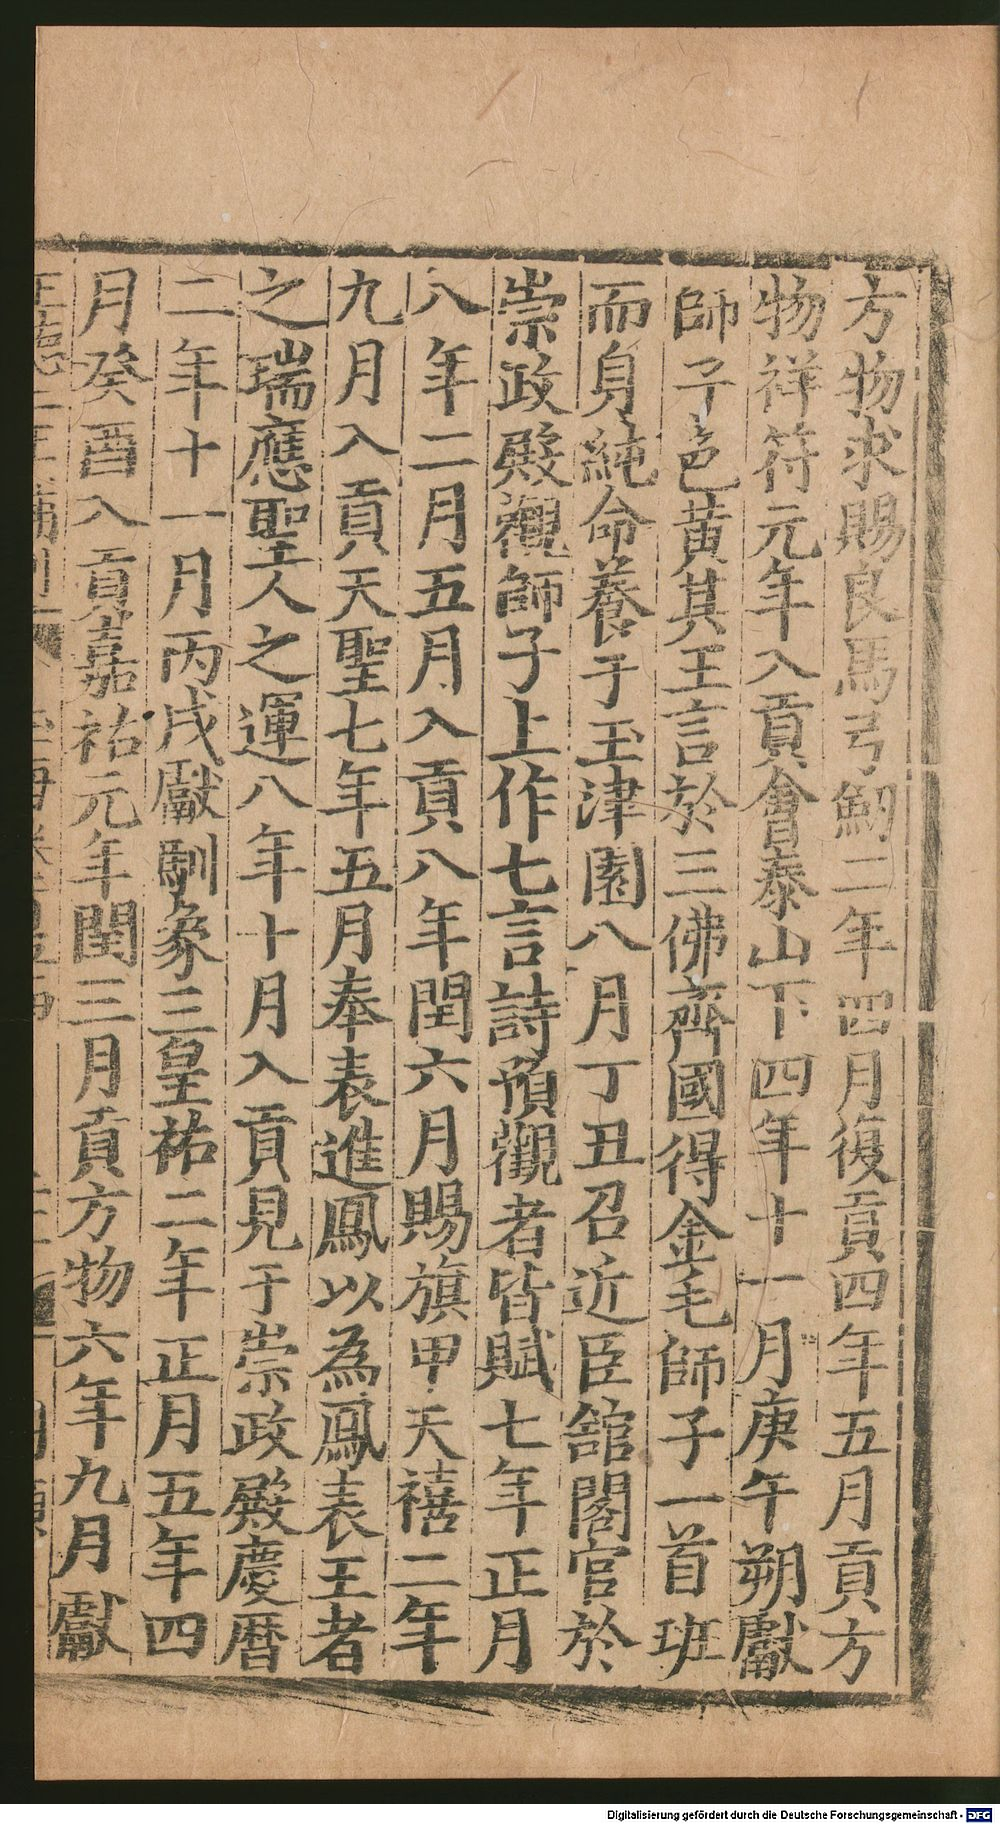 方物求賜良馬弓劒二年四月復貢四年五月貢方
物祥符元年入貢會泰山下四年十一月庚午朔獻
師子色黃其王言於三佛齊國得金毛師子一首班
而身純命養于玉津園八月丁丑召近臣舘閣官於
崇政殿觀師子上作七言詩預觀者皆賦七年正月
八年二月五月入貢八年閏六月賜旗甲天禧二年
九月入貢天聖七年五月奉表進鳳以為鳳表王者
之瑞應聖人之運八年十月入貢見于崇政殿慶曆
二年十一月丙戌獻馴象三皇祐二年正月五年四
月癸酉入貢嘉祐元年閏三月貢方物六年九月獻
Digitalisierung gefördert durch die Deutsche Forschungsgemeinschaft - DFG